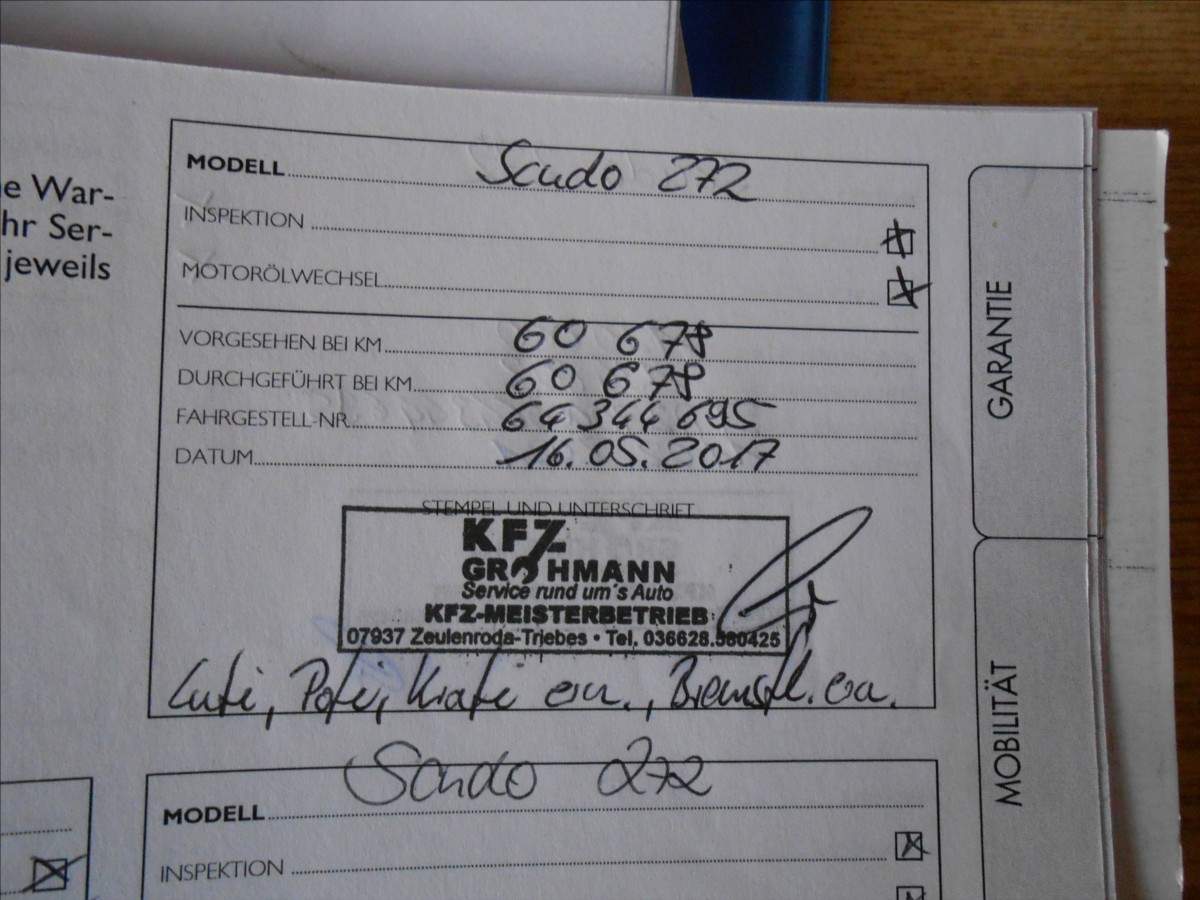 e War-
hr Ser-
jeweils
MODELL Scudo 272
INSPEKTION
MOTORÖLWECHSEL
VORGESEHEN BEI KM 60 678
DURCHGEFÜHRT BEI KM 60 678
FAHRGESTELL-NR. 64344695
DATUM 16.05.2017
STEMPEL UND UNTERSCHRIFT
KFZ
GROHMANN
Service rund um´s Auto
KFZ-MEISTERBETRIEB
07937 Zeulenroda-Triebes • Tel. 036628.580425
Lufi, Pofi, Krafi ern., Bremsfl. ern.
MODELL Scudo 272
INSPEKTION
GARANTIE
MOBILITÄT